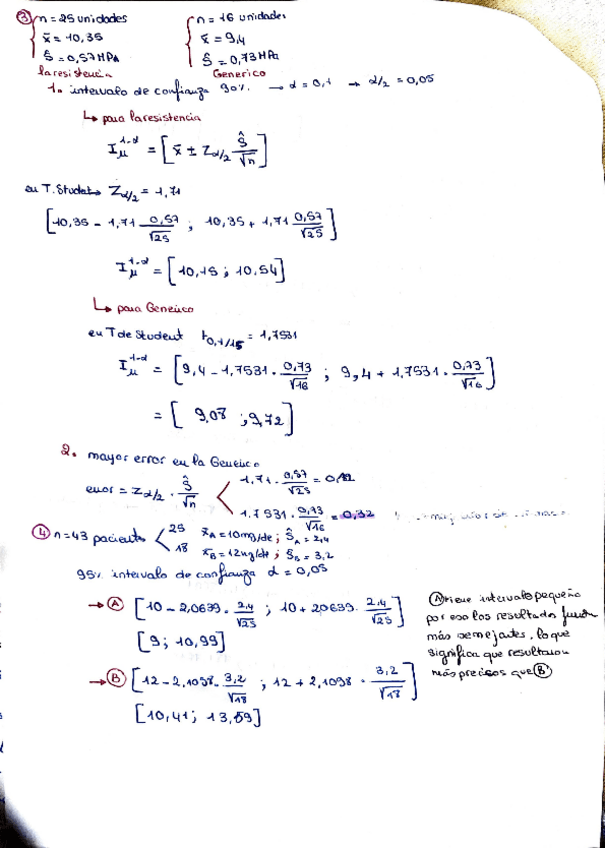 ③ n = 25 unidades
x̄ = 10,35
Ŝ = 0,57 HPA
laresistencia
n = 16 unidades
x̄ = 9,4
Ŝ = 0,73 HPa
Generico
1. intervalo de confianza 90% → α = 0,1 → α/2 = 0,05
↳ para laresistencia
I_μ^{1-α} = [x̄ ± Z_{α/2} Ŝ/√n]
en T. Student Z_{α/2} = 1,71
[10,35 - 1,71 0,57/√25 ; 10,35 + 1,71 0,57/√25]
I_μ^{1-α} = [10,15 ; 10,54]
↳ para Generico
en T de Student t_{0,1/15} = 1,7531
I_μ^{1-α} = [9,4 - 1,7531 · 0,73/√16 ; 9,4 + 1,7531 · 0,73/√16]
= [ 9,08 ; 9,72]
2. mayor error en la Generico
error = Z_{α/2} · Ŝ/√n
1,71 · 0,57/√25 = 0,12
1,7531 · 0,73/√16 = 0,32
④ n = 43 pacientes
25 x̄_A = 10mg/de ; Ŝ_A = 2,4
18 x̄_B = 12ug/de ; Ŝ_B = 3,2
95% intervalo de confianza α = 0,05
→ Ⓐ [10 - 2,0639 · 2,4/√25 ; 10 + 20639 · 2,4/√25]
[9 ; 10,99]
→ Ⓑ [12 - 2,1098 · 3,2/√18 ; 12 + 2,1098 · 3,2/√18]
[10,41 ; 13,59]
Ⓐ tiene intervalo pequeño
por eso los resultados fueron
más semejantes, lo que
significa que resultaron
más precisos que Ⓑ